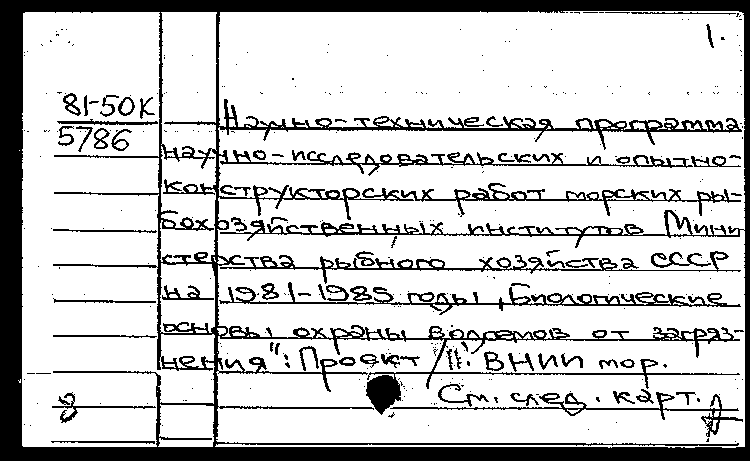 1.
81-50К
5786
Научно-техническая программа
научно-исследовательских и опытно-
конструкторских работ морских ры-
бохозяйственных институтов Мини
стерства рыбного хозяйства СССР
на 1981-1985 годы „Биологические
основы охраны водоемов от загряз-
нения": Проект / ВНИИ мор.
См. след. карт.